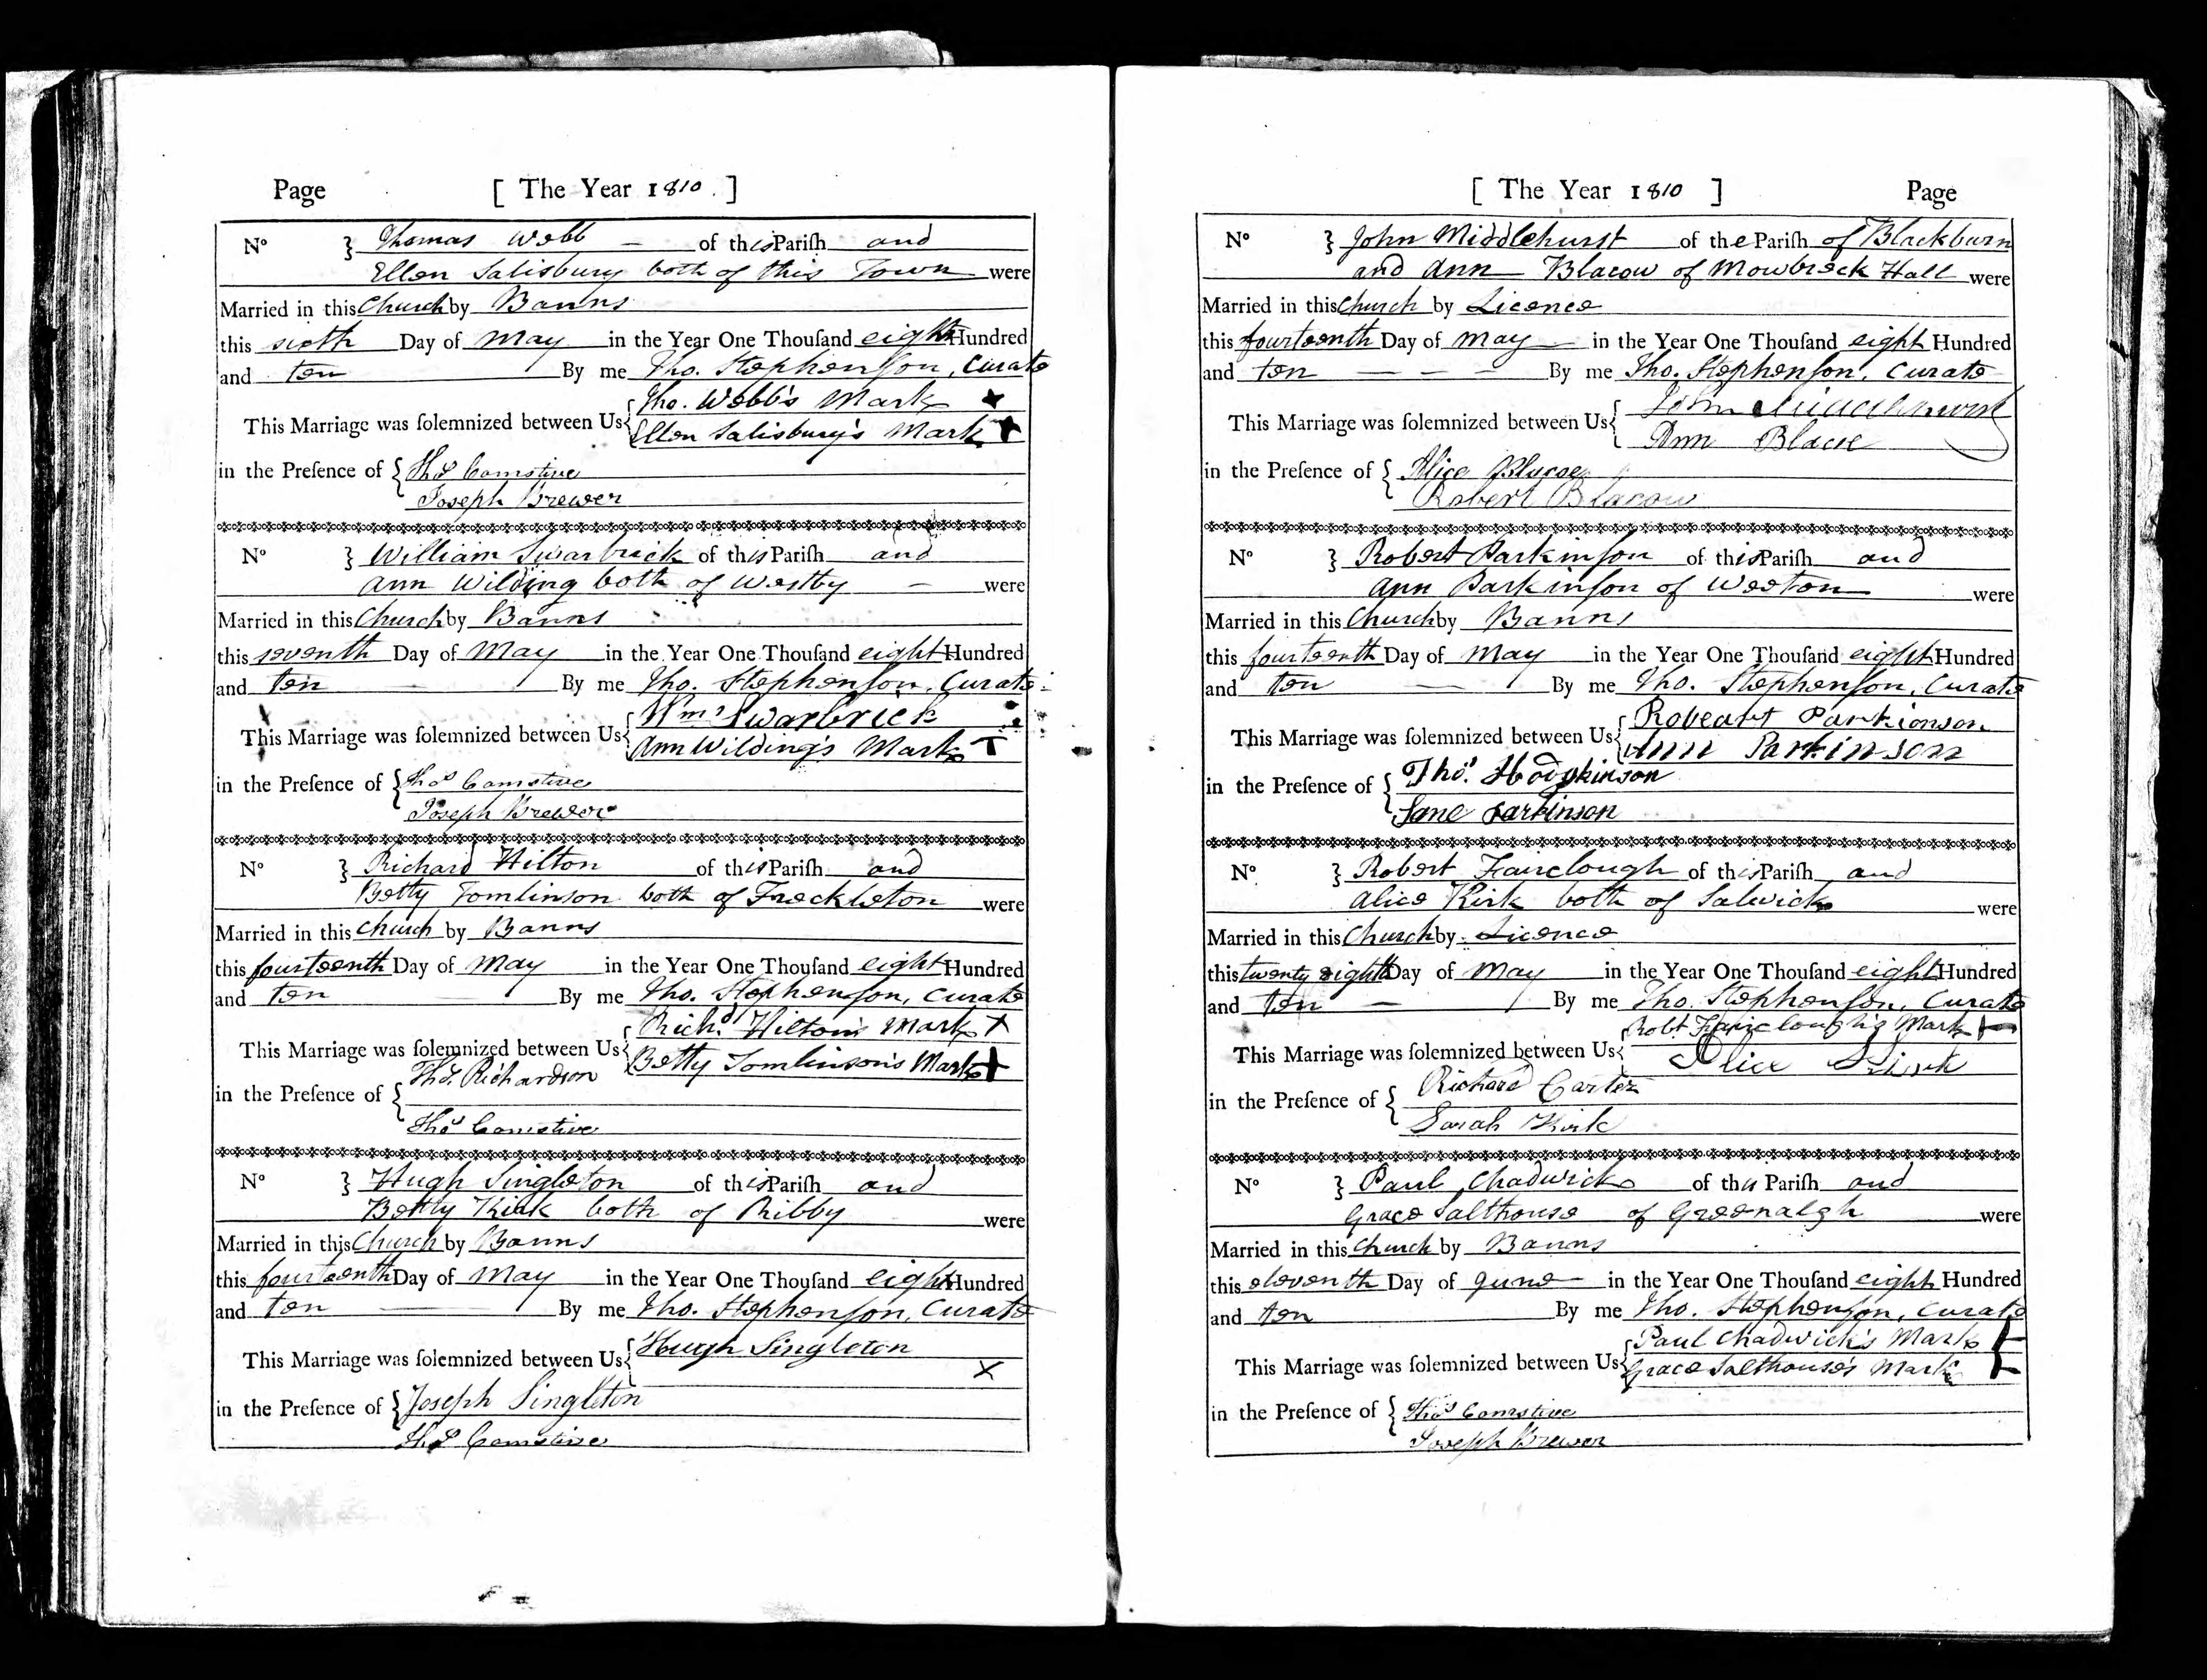 Page [ The Year 1810. ]
No } Thomas Webb — of this Pariſh and
Ellen Salisbury both of this Town were
Married in this Church by Banns
this sixth Day of May in the Year One Thouſand eight Hundred
and ten By me Tho. Stephenſon, Curate
This Marriage was ſolemnized between Us { Tho. Webb's Mark +
Ellen Salisbury's Mark +
in the Preſence of { Thos Comstive
Joseph Brewer
No } William Swarbrick of this Pariſh and
Ann Wilding both of Westby — were
Married in this Church by Banns
this seventh Day of May in the Year One Thouſand eight Hundred
and ten By me Tho. Stephenſon, Curate
This Marriage was ſolemnized between Us { Wm Swarbrick
Ann Wilding's Mark +
in the Preſence of { Thos Comstive
Joseph Brewer
No } Richard Hilton of this Pariſh and
Betty Tomlinson both of Freckleton were
Married in this Church by Banns
this fourteenth Day of May in the Year One Thouſand eight Hundred
and ten By me Tho. Stephenſon, Curate
This Marriage was ſolemnized between Us { Richd Hilton's Mark +
Betty Tomlinson's Mark +
in the Preſence of { Thos Richardson
Thos Comstive
No } Hugh Singleton of this Pariſh and
Betty Kirk both of Ribby were
Married in this Church by Banns
this fourteenth Day of May in the Year One Thouſand eight Hundred
and ten By me Tho. Stephenſon, Curate
This Marriage was ſolemnized between Us { Hugh Singleton
X
in the Preſence of { Joseph Singleton
Thos Comstive
[ The Year 1810 ] Page
No } John Middlehurst of the Pariſh of Blackburn
and Ann Blacow of Mowbreck Hall were
Married in this Church by Licence
this fourteenth Day of May in the Year One Thouſand eight Hundred
and ten — — — By me Tho. Stephenſon, Curate
This Marriage was ſolemnized between Us { John Middlehurst
Ann Blacoe
in the Preſence of { Alice Blacoe
Robert Blacow
No } Robert Parkinſon of this Pariſh and
Ann Parkinſon of Weeton were
Married in this Church by Banns
this fourteenth Day of May in the Year One Thouſand eight Hundred
and ten — By me Tho. Stephenſon, Curate
This Marriage was ſolemnized between Us { Robeart Parkionson
Ann Parkinson
in the Preſence of { Thos. Hodgkinson
Jane Parkinson
No. } Robert Fairclough of this Pariſh and
Alice Kirk both of Salwick were
Married in this Church by Licence
this twenty eighth Day of May in the Year One Thouſand eight Hundred
and ten — By me Tho. Stephenſon, Curate
This Marriage was ſolemnized between Us { Robt Fairclough's Mark +
Alice Kirk
in the Preſence of { Richard Carter
Sarah Kirk
No } Paul Chadwick of this Pariſh and
Grace Salthouse of Greenalgh were
Married in this Church by Banns
this eleventh Day of June in the Year One Thouſand eight Hundred
and ten By me Tho. Stephenſon, Curate
This Marriage was ſolemnized between Us { Paul Chadwick's Mark +
Grace Salthouse's Mark +
in the Preſence of { Thos Comstive
Joseph Brewer